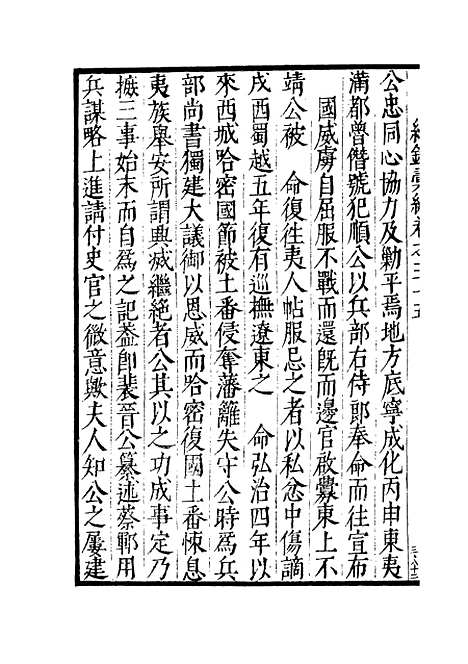 公忠同心協力及勦平焉地方底寧成化丙申東夷
滿都魯僭號犯順公以兵部右侍郎奉命而往宣布
國威虜自屈服不戰而還旣而邊官啟釁東上不
靖公被　命復往夷人帖服忌之者以私忿中傷謫
戍西蜀越五年復有巡撫遼東之　命弘治四年以
來西域哈密國節被土番侵奪藩離失守公時爲兵
部尚書獨建大議御以恩威而哈密復國土番悚息
夷族舉安所謂興滅繼絕者公其以之功成事定乃
摭三事始末而自爲之記葢卽裴晉公纂述蔡鄆用
兵謀略上進請付史官之微意歟夫人知公之屢建